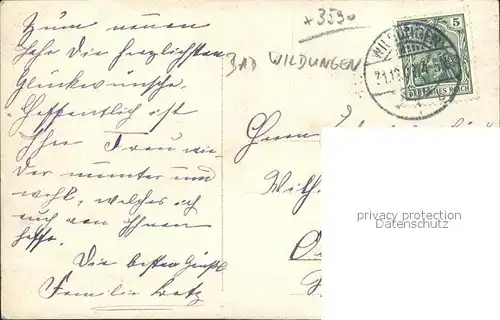 Zum neuen
Jahr die herzlichsten
Glückwünsche.
Hoffentlich ist
Ihre Frau wie-
der munter und
wohl, welches ich
auch von Ihnen
hoffe.
Die besten Grüße
Familie
+3590
BAD WILDUNGEN
WILDUNGEN
5
DEUTSCHES REICH
Herrn
Wilh.
privacy protection
Datenschutz